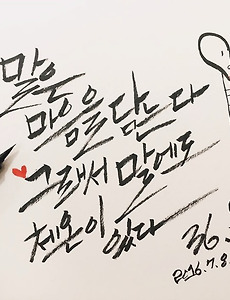 말은
마음을 담는다
그래서 말에도
체온이 있다
36.
2016.7.8.